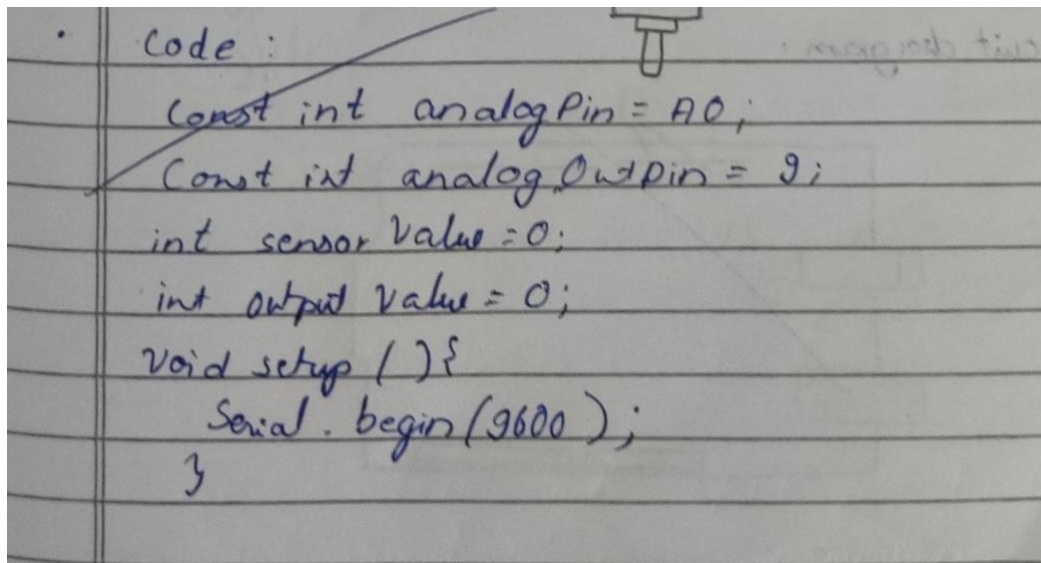 Code :
Const int analogPin = A0;
Const int analog OutPin = 9;
int sensor Value = 0;
int output Value = 0;
Void setup ( ) {
Serial . begin (9600 );
}